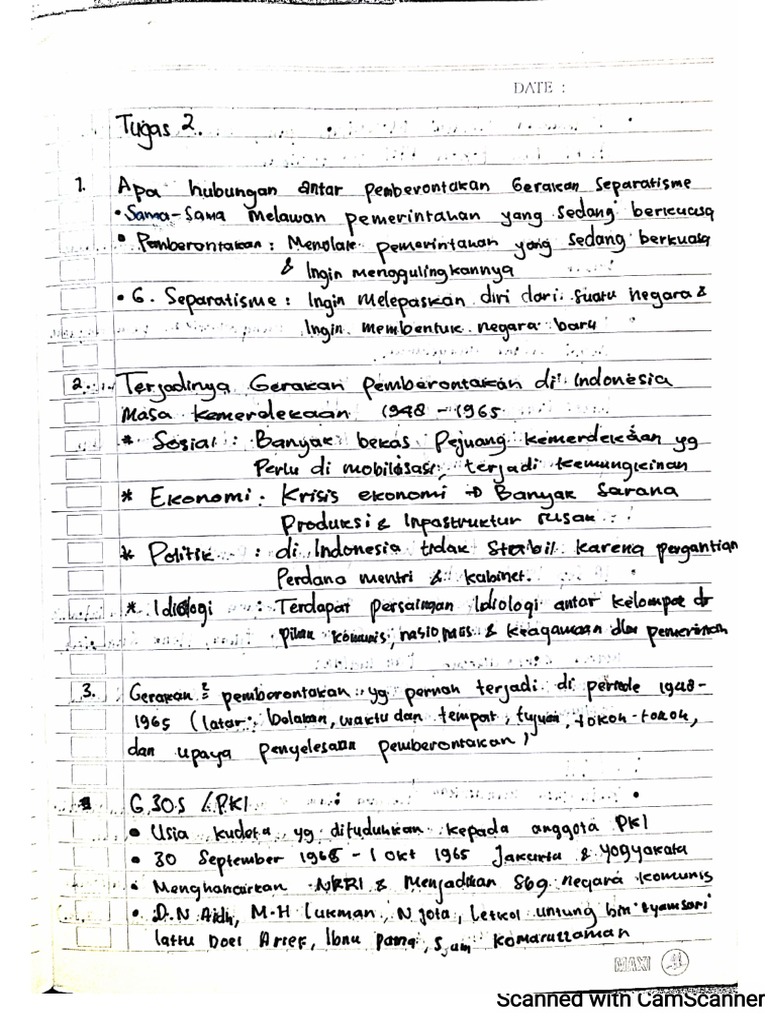 DATE :
Tugas 2.
1. Apa hubungan antar pemberontakan Gerakan Separatisme
• Sama-Sama Melawan pemerintahan yang sedang berkuasa
• Pemberontakan : Menolak pemerintahan yang sedang berkuasa
& Ingin menggulingkannya
• G. Separatisme : Ingin Melepaskan diri dari suatu negara &
Ingin membentuk negara baru
2. Terjadinya Gerakan pemberontakan di Indonesia
Masa kemerdekaan 1948 - 1965
* Sosial : Banyak bekas Pejuang kemerdekaan yg
Perlu di mobilisasi, terjadi kemungkinan
* Ekonomi : Krisis ekonomi → Banyak Sarana
Produksi & Inpastruktur rusak
* Politik : di Indonesia tidak Stabil karena pergantian
Perdana mentri & kabinet.
* Idiologi : Terdapat persaingan Idiologi antar kelompok dr
pihak komunis, nasionalis & keagamaan dlm pemerintah
3. Gerakan² pemborontakan yg pernah terjadi di periode 1948-
1965 (latar belakan, waktu dan tempat, tujuan, tokoh-tokoh,
dan upaya penyelesaian pemberontakan)
G 30 S / PKI
• Usia kudeta yg dituduhkan kepada anggota PKI
• 30 September 1965 - 1 Okt 1965 Jakarta & Yogyakata
• Menghancirkan NKRI & Menjadikan sbg negara komunis
• D.N Aidit, M.H Lukman, Njota, Letkol untung bin syamsari
lattu Doel Arief, Ibnu Sjam Komaruzzaman
MAXI
Scanned with CamScanner